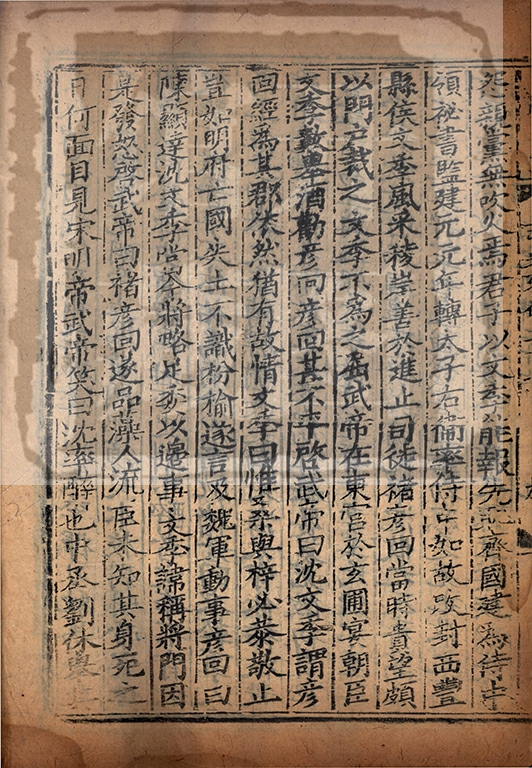 怨親黨無吹火焉君子以文季能報先恥齊國建為侍中
領祕書監建元元年轉太子右衞率侍中如故改封西豐
縣侯文季風采稜岸善於進止司徒褚彦回當時貴望頗
以門戶裁之文季不為之屈武帝在東宮於玄圃宴朝臣
文季數舉酒勸彦回彦回甚不平啓武帝曰沈文季謂彦
回經為其郡依然猶有故情文季曰惟桑與梓必恭敬止
豈如明府亡國失土不識枌榆遂言及魏軍動事彦回曰
陳顯達沈文季當今將略足委以邊事文季諱稱將門因
是發怒啓武帝曰褚彦回遂品藻人流臣未知其身死之
日何面目見宋明帝武帝笑曰沈率醉也中丞劉休舉其